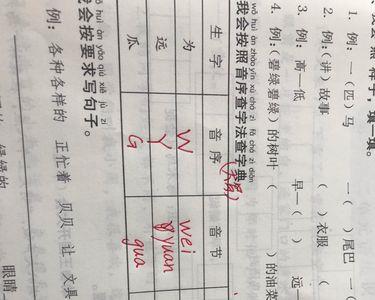 我会照样子,填一项。
1. 例:一(匹)马 一( )尾巴 一(
2. 例:(讲)故事 ( )衣服 (
3. 例:高—低 早—( ) 远—
4. 例:(碧绿碧绿)的树叶 ( )的油菜
wǒ huì àn zhào yīn xù chá zì fǎ chá zì diǎn
我会按照音序查字法查字典
生字 音序 音节
为 W wei
远 Y yuan
瓜 G gua
wǒ huì àn yāo qiú xiě jù zi
我会按要求写句子。
例:各种各样的 正忙着 贝贝 让 文具
绿绿的 眼睛